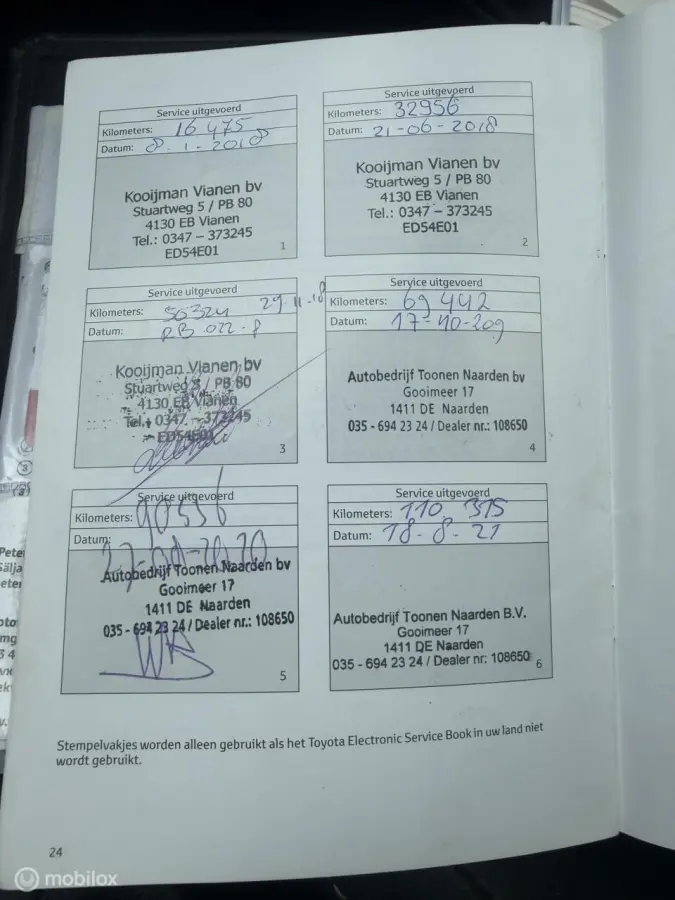 Service uitgevoerd
Kilometers: 16 475
Datum: 8.1-2018
Kooijman Vianen bv
Stuartweg 5 / PB 80
4130 EB Vianen
Tel.: 0347 – 373245
ED54E01
1
Service uitgevoerd
Kilometers: 32956
Datum: 21-06-2018
Kooijman Vianen bv
Stuartweg 5 / PB 80
4130 EB Vianen
Tel.: 0347 – 373245
ED54E01
2
Service uitgevoerd
Kilometers: 50324 29-11-18
Datum:
Kooijman Vianen bv
Stuartweg 5 / PB 80
4130 EB Vianen
Tel.: 0347 – 373245
ED54E01
3
Service uitgevoerd
Kilometers: 69 442
Datum: 17-10-209
Autobedrijf Toonen Naarden bv
Gooimeer 17
1411 DE Naarden
035 - 694 23 24 / Dealer nr.: 108650
4
Service uitgevoerd
Kilometers: 90536
Datum:
Autobedrijf Toonen Naarden bv
Gooimeer 17
1411 DE Naarden
035 - 694 23 24 / Dealer nr.: 108650
5
Service uitgevoerd
Kilometers: 110 315
Datum: 18-8-21
Autobedrijf Toonen Naarden B.V.
Gooimeer 17
1411 DE Naarden
035 - 694 23 24 / Dealer nr: 108650
6
Stempelvakjes worden alleen gebruikt als het Toyota Electronic Service Book in uw land niet
wordt gebruikt.
24
mobilox